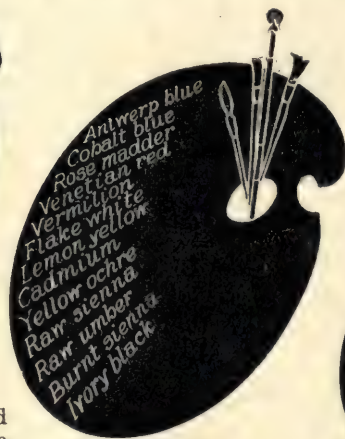 Antwerp blue
Cobalt blue
Rose madder
Venetian red
Vermilion
Flake white
Lemon yellow
Cadmium
Yellow ochre
Raw sienna
Raw umber
Burnt sienna
Ivory black